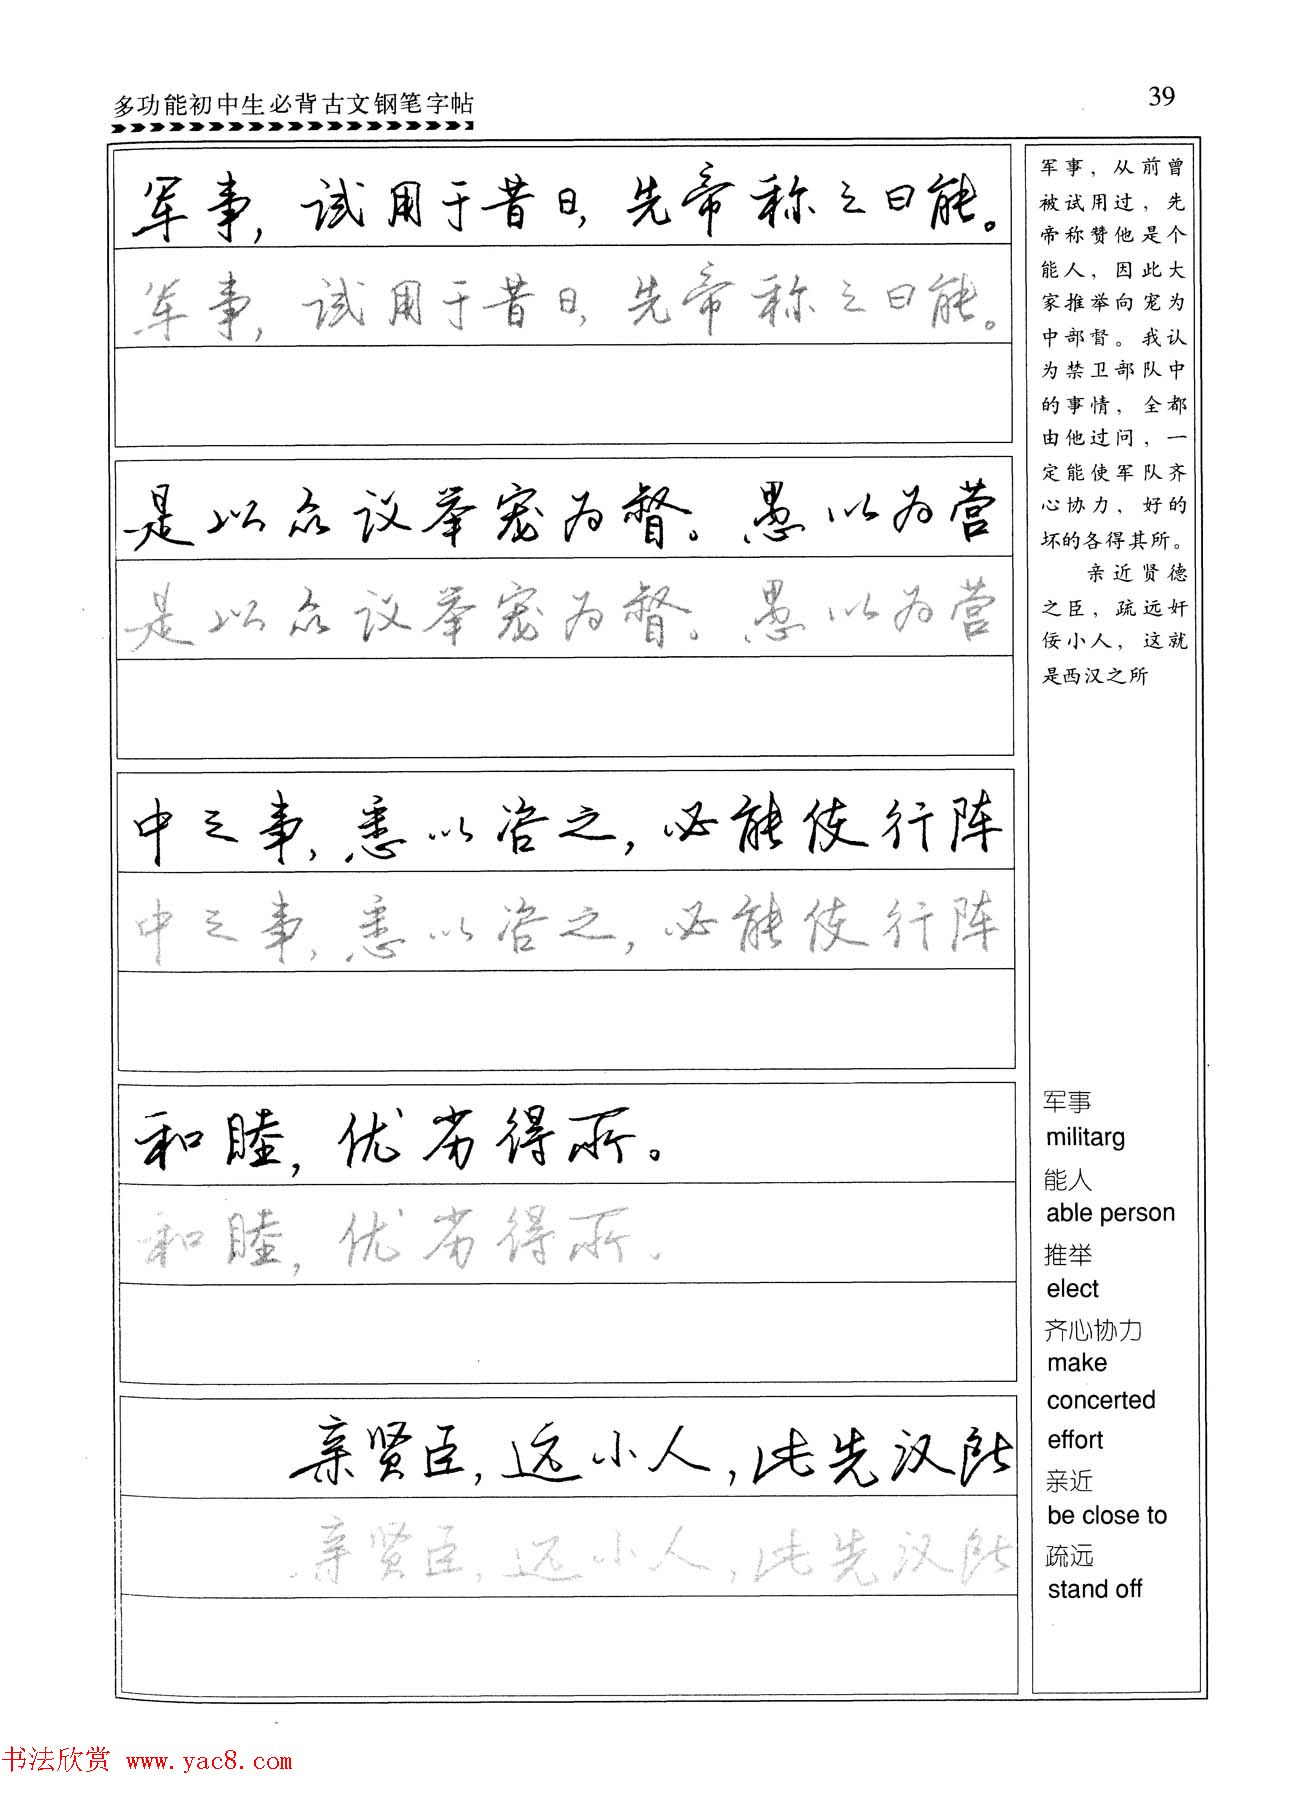 多功能初中生必背古文钢笔字帖
39
军事，试用于昔日，先帝称之曰能。
军事，试用于昔日，先帝称之曰能。
是以众议举宠为督。愚以为营
是以众议举宠为督。愚以为营
中之事，悉以咨之，必能使行阵
中之事，悉以咨之，必能使行阵
和睦，优劣得所。
和睦，优劣得所。
亲贤臣，远小人，此先汉所
亲贤臣，远小人，此先汉所
军事，从前曾
被试用过，先
帝称赞他是个
能人，因此大
家推举向宠为
中部督。我认
为禁卫部队中
的事情，全都
由他过问，一
定能使军队齐
心协力，好的
坏的各得其所。
亲近贤德
之臣，疏远奸
佞小人，这就
是西汉之所
军事
militarg
能人
able person
推举
elect
齐心协力
make
concerted
effort
亲近
be close to
疏远
stand off
书法欣赏 www.yac8.com